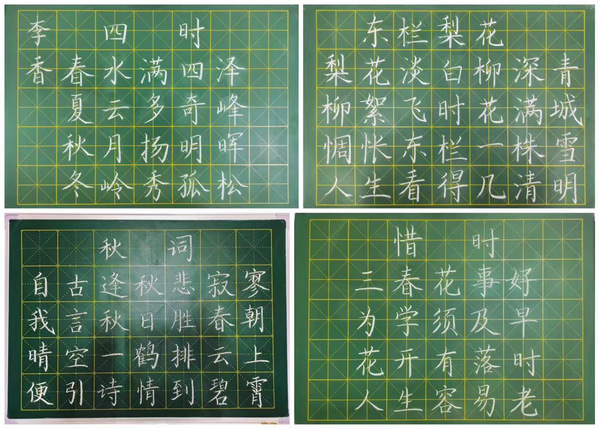 李 四 时
香 春水满四泽
夏云多奇峰
秋月扬明晖
冬岭秀孤松
东栏梨花
梨花淡白柳深青
柳絮飞时花满城
惆怅东栏一株雪
人生看得几清明
秋词
自古逢秋悲寂寥
我言秋日胜春朝
晴空一鹤排云上
便引诗情到碧霄
惜时
三春花事好
为学须及早
花开有落时
人生容易老